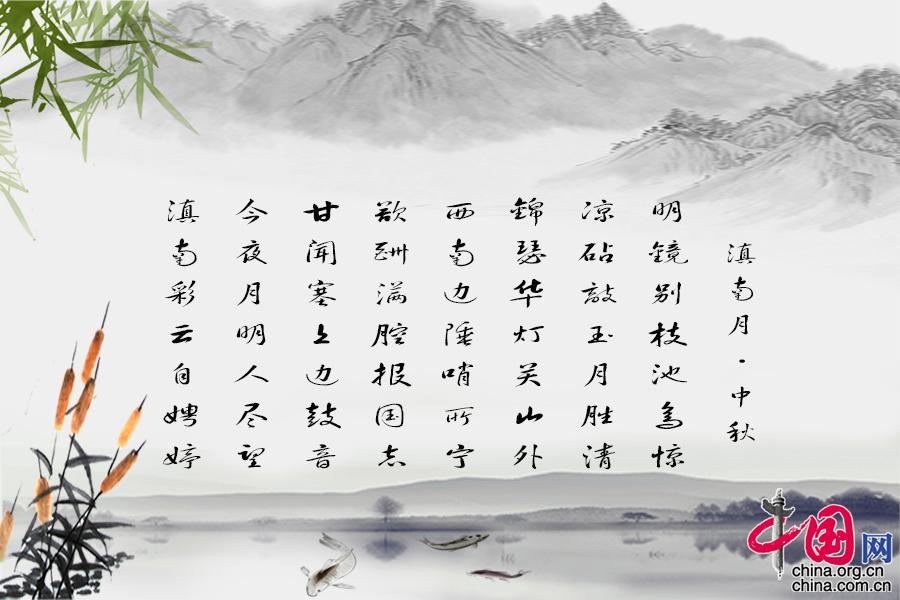 滇南月·中秋
明镜别枝池鸟惊
凉砧敲玉月胜清
锦瑟华灯关山外
西南边陲哨所宁
欲酬满腔报国志
甘闻塞上边鼓音
今夜月明人尽望
滇南彩云自娉婷
中国网
china.org.cn
china.com.cn